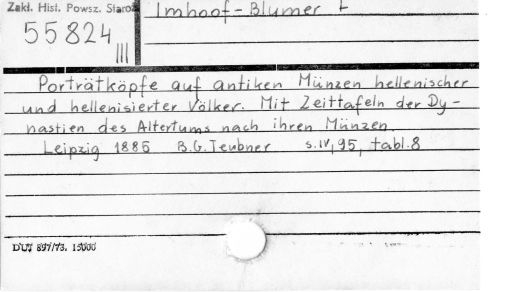 Zakł. Hist. Powsz. Staroż
Imhoof-Blumer F
55824
III
Porträtköpfe auf antiken Münzen hellenischer
und hellenisierter Völker. Mit Zeittafeln der Dy-
nastien des Altertums nach ihren Münzen
Leipzig 1885 B.G. Teubner s.IV, 95, tabl. 8
DUW 897/73. 15000